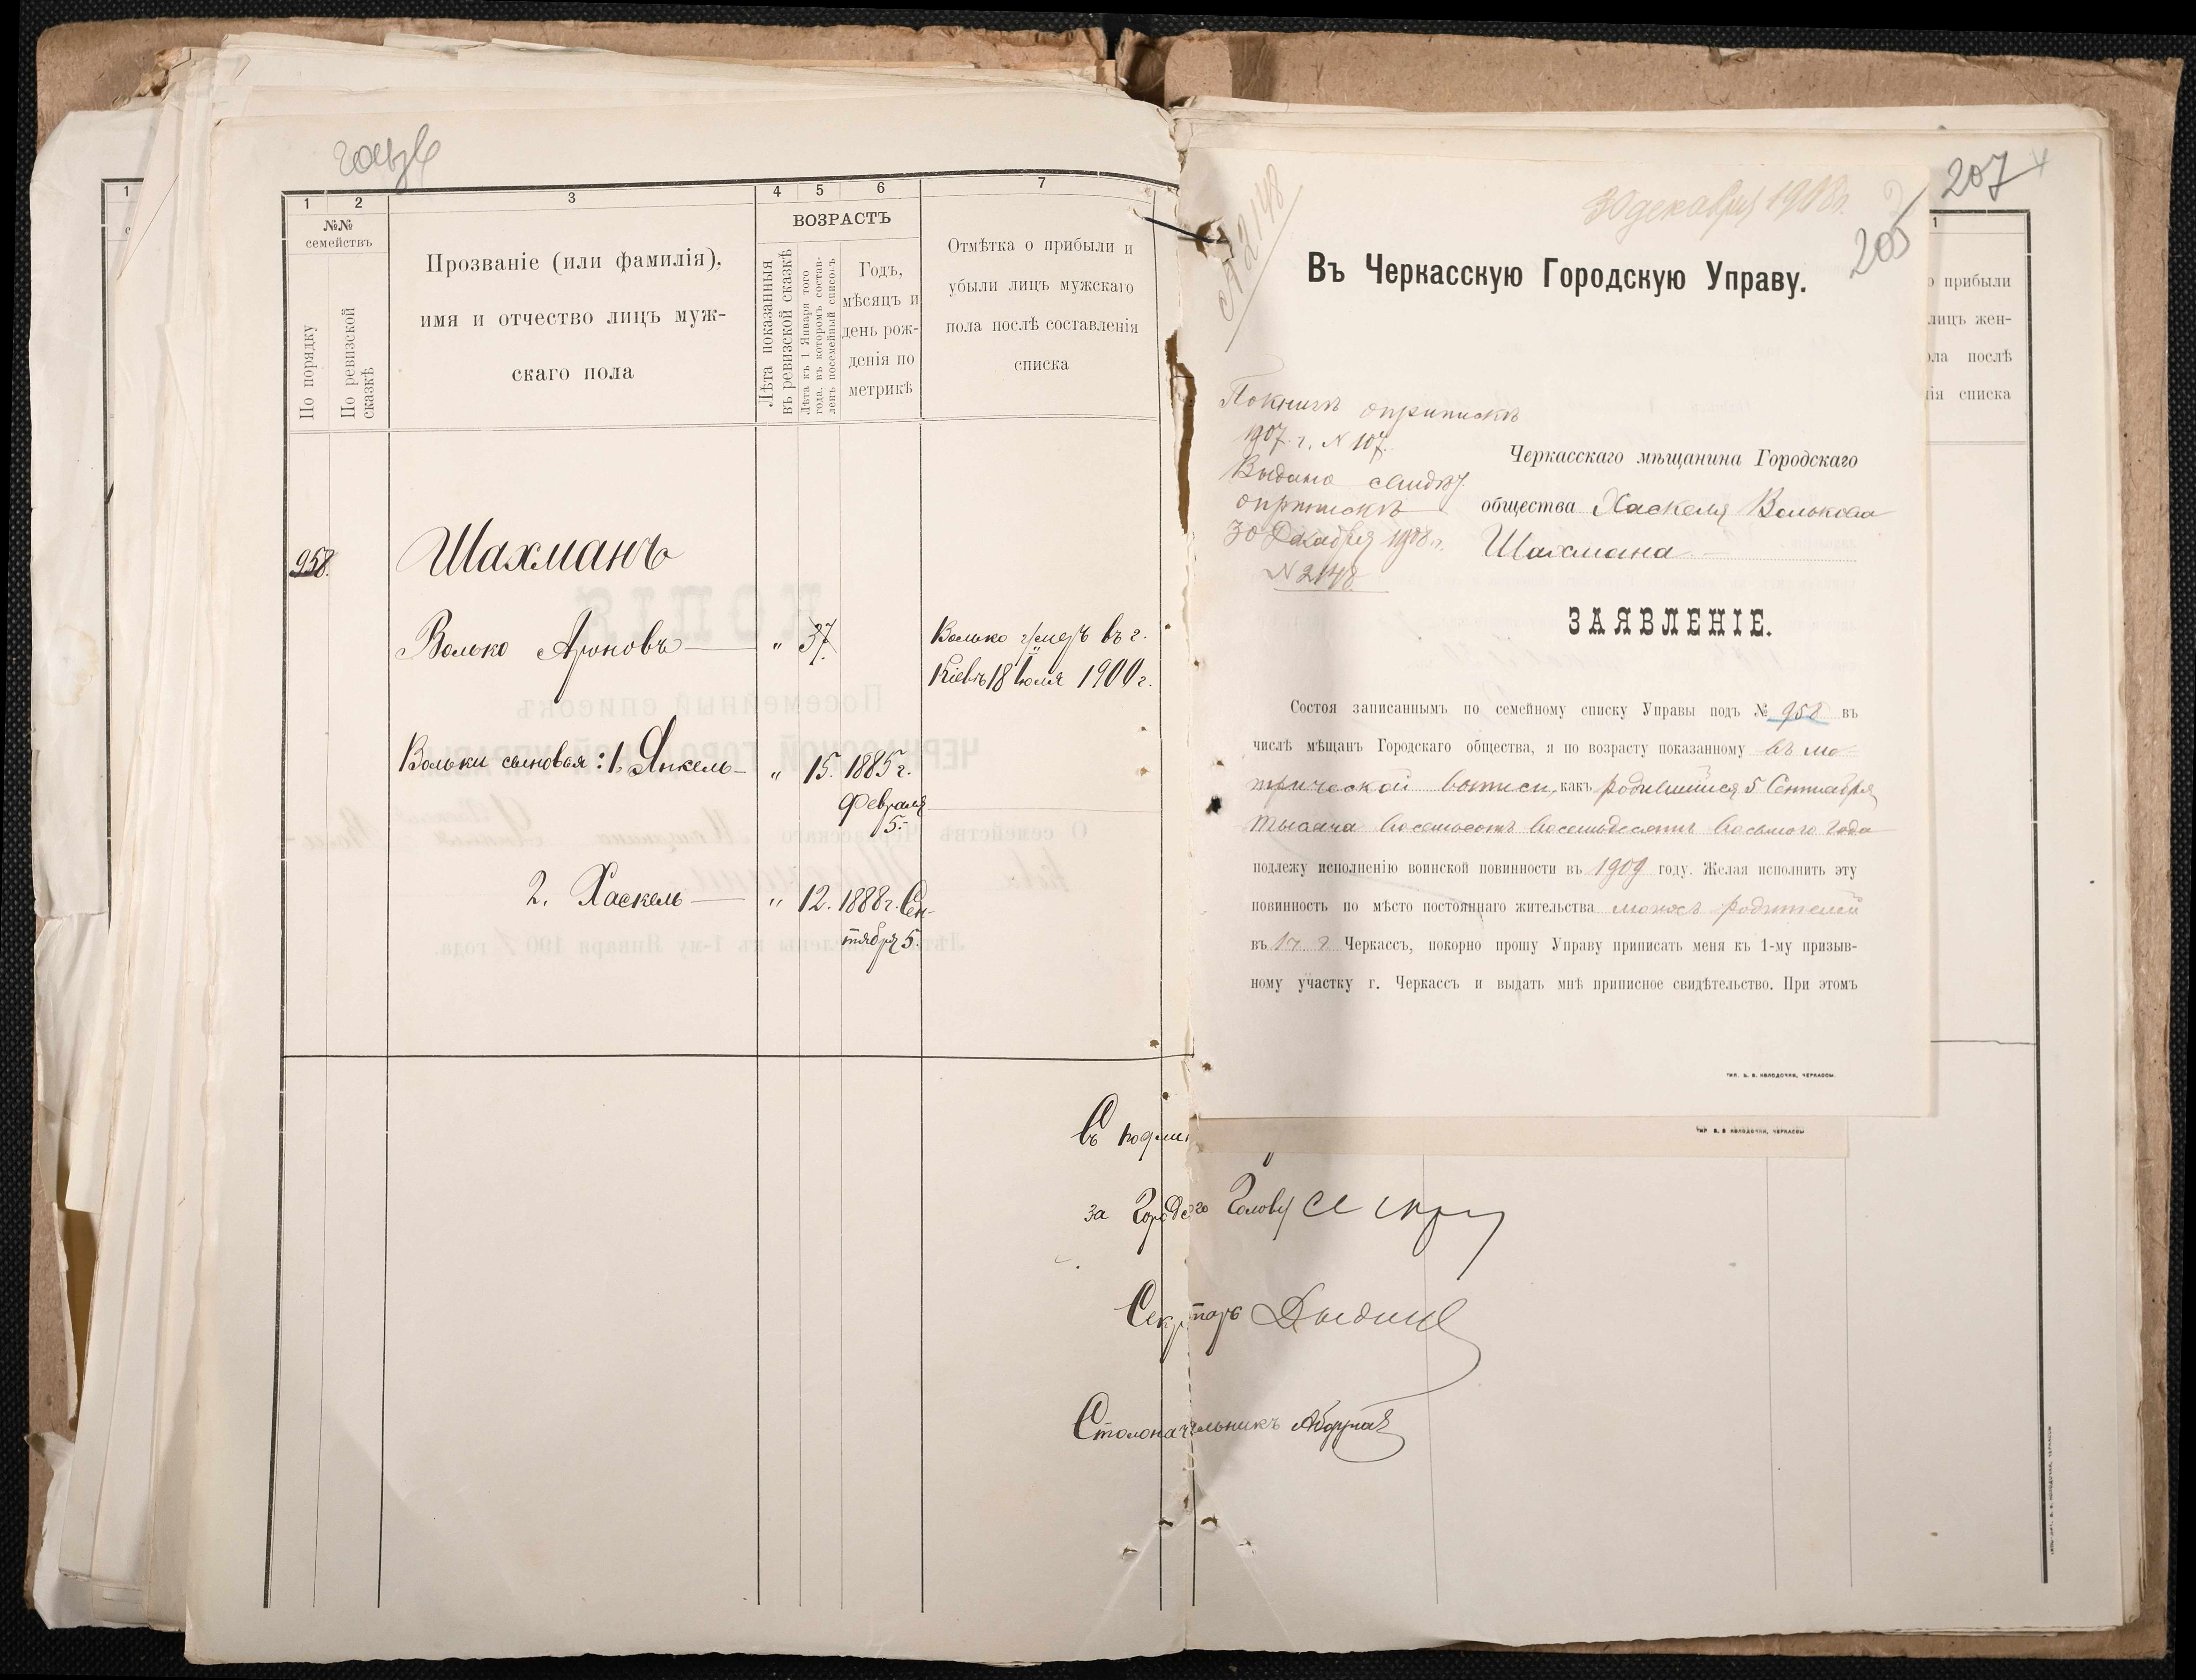 1 2 3 4 5 6 7
№№
семействъ
По порядку
По ревизской
сказкѣ
Прозваніе (или фамилія),
имя и отчество лицъ муж-
скаго пола
ВОЗРАСТЪ
Лѣта показанныя
въ ревизской сказкѣ
Лѣта къ 1 Января того
года, въ которомъ состав-
ленъ посемейный списокъ
Годъ,
мѣсяцъ и
день рож-
денія по
метрикѣ
Отмѣтка о прибыли и
убыли лицъ мужскаго
пола послѣ составленія
списка
958.
Шахманъ
Волько Ароновъ " 37.
Волько умеръ въ г.
Кіевѣ 18 Іюля 1900 г.
Вольки сыновья: 1. Янкель " 15. 1885 г.
Февраля
5.
2. Хаскель " 12. 1888 г. Сен-
тября 5.
Въ подлин
за Городского Голову
Секретарь
Столоначальникъ
207
205
30 декабря 1908 г.
№ 2148
Въ Черкасскую Городскую Управу.
По книгѣ о припискѣ
1907 г. № 107.
Выдано свид.
о припискѣ
30 Декабря 1908 г.
№ 2148
Черкасскаго мѣщанина Городскаго
общества Хаскеля Волькова
Шахмана
ЗАЯВЛЕНІЕ.
Состоя записаннымъ по семейному списку Управы подъ № 958 въ
числѣ мѣщанъ Городскаго общества, я по возрасту показанному въ ме-
трической выписи, какъ родившійся 5 Сентября
тысяча восемьсотъ восемьдесятъ восьмого года
подлежу исполненію воинской повинности въ 1909 году. Желая исполнить эту
повинность по мѣсто постояннаго жительства моихъ родителей
въ г. Черкассъ, покорно прошу Управу приписать меня къ 1-му призыв-
ному участку г. Черкассъ и выдать мнѣ приписное свидѣтельство. При этомъ
ТИП. В. В. КОЛОДОЧКИ, ЧЕРКАССЫ.
ТИП. В. В. КОЛОДОЧКИ, ЧЕРКАССЫ
1
о прибыли
лицъ жен-
ола послѣ
нія списка